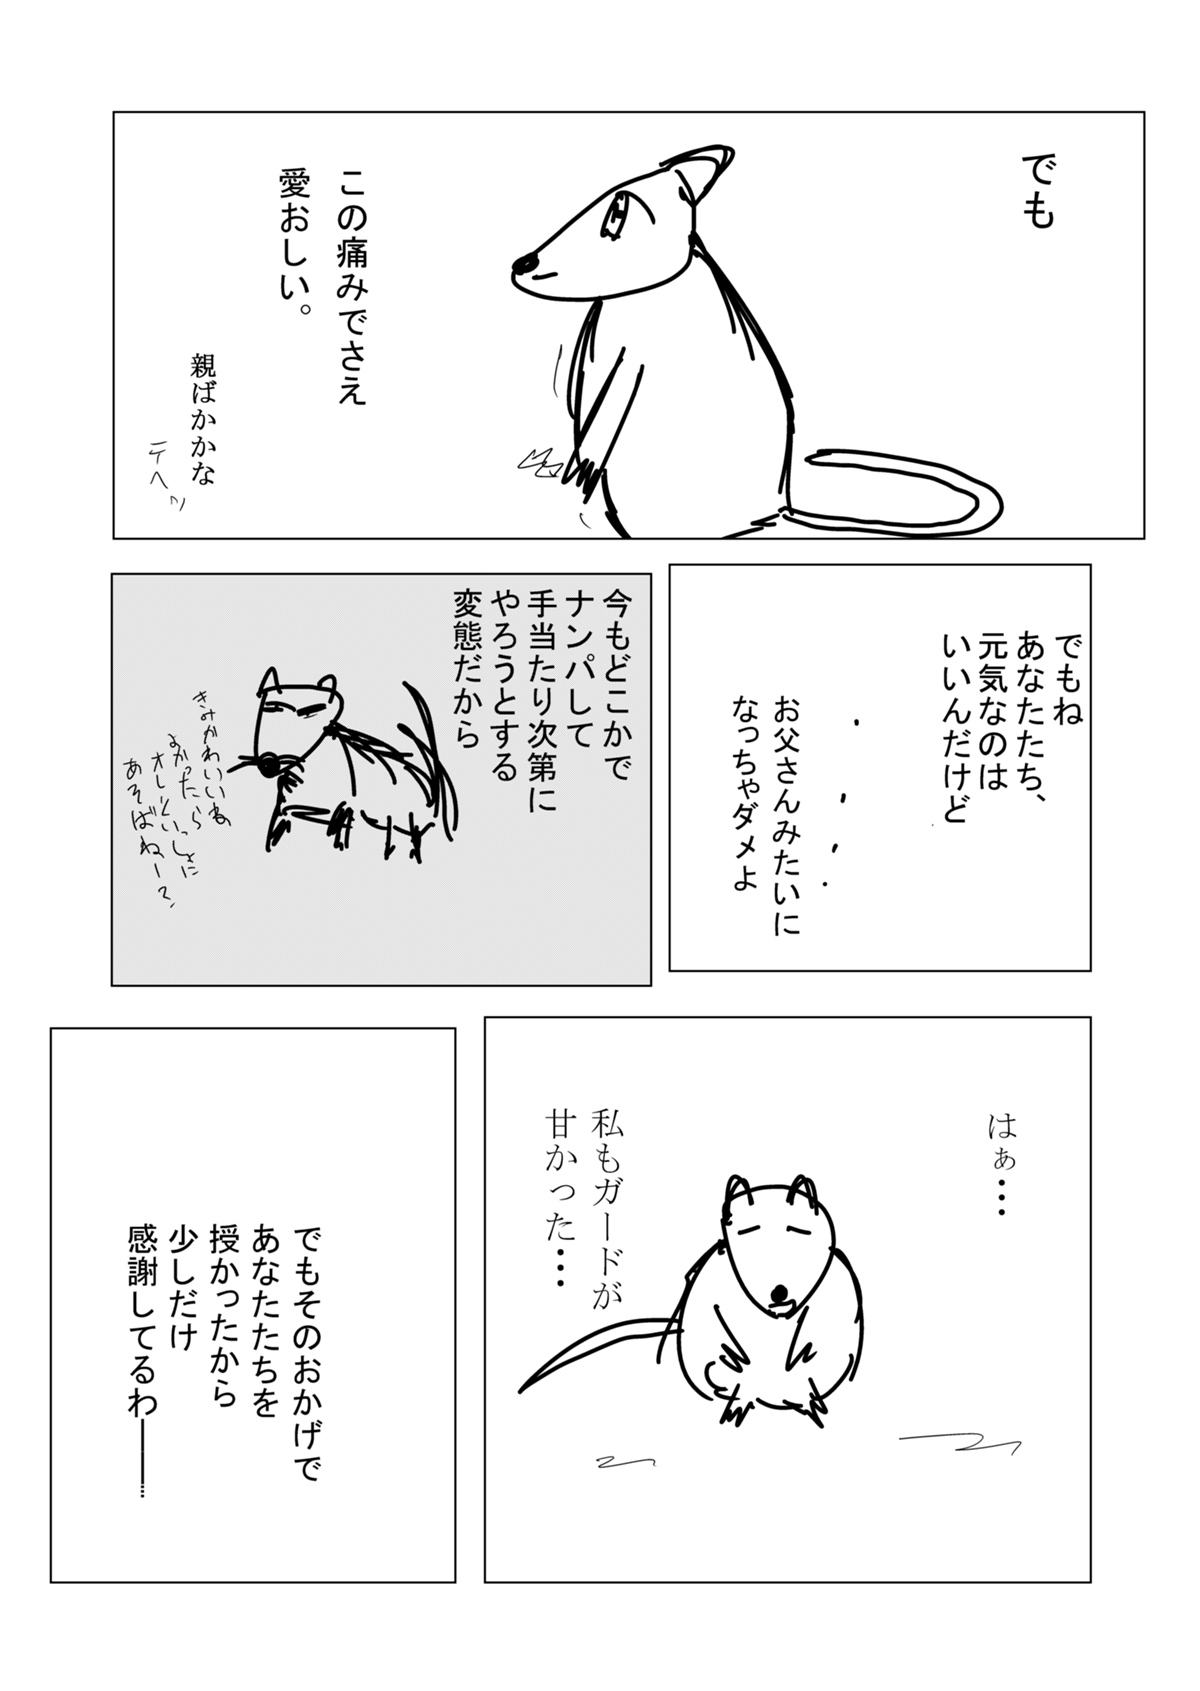 でも
この痛みでさえ
愛おしい。
親ばかかな
テヘッ
でもね
あなたたち、
元気なのは
いいんだけど
お父さんみたいに
なっちゃダメよ
今もどこかで
ナンパして
手当たり次第に
やろうとする
変態だから
きみかわいいね
よかったら
オレといっしょに
あそばねー？
はぁ・・・
私もガードが
甘かった・・・
でもそのおかげで
あなたたちを
授かったから
少しだけ
感謝してるわ――…